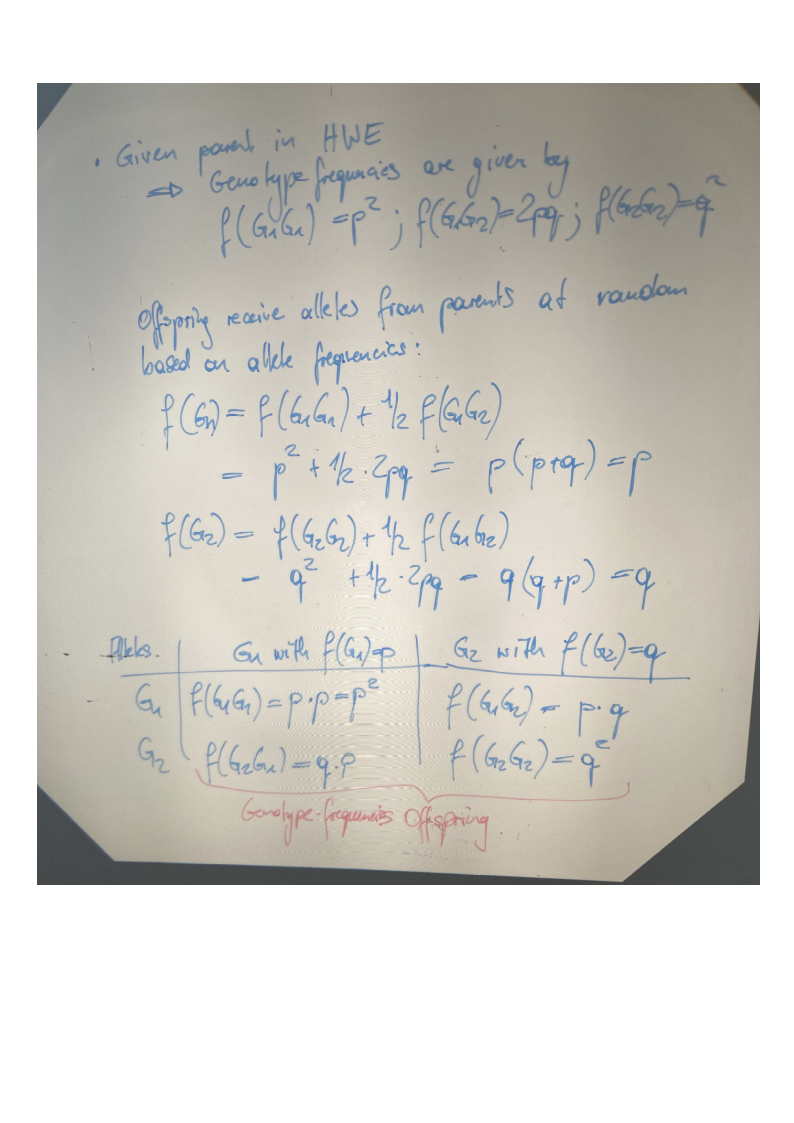 • Given parent in HWE
⇒ Genotype frequncies are given by
f(G₁G₁) = p²; f(G₁G₂)=2pq; f(G₂G₂)=q²
Offspring receive alleles from parents at random
based on allele frequencies:
f(G₁) = f(G₁G₁) + 1/2 f(G₁G₂)
= p² + 1/2 · 2pq = p(p+q) = p
f(G₂) = f(G₂G₂) + 1/2 f(G₁G₂)
= q² + 1/2 · 2pq = q(q+p) = q
Alleles G₁ with f(G₁)=p G₂ with f(G₂)=q
G₁ f(G₁G₁) = p·p = p² f(G₁G₂) = p·q
G₂ f(G₂G₁) = q·p f(G₂G₂) = q²
Genotype-frequencies Offspring